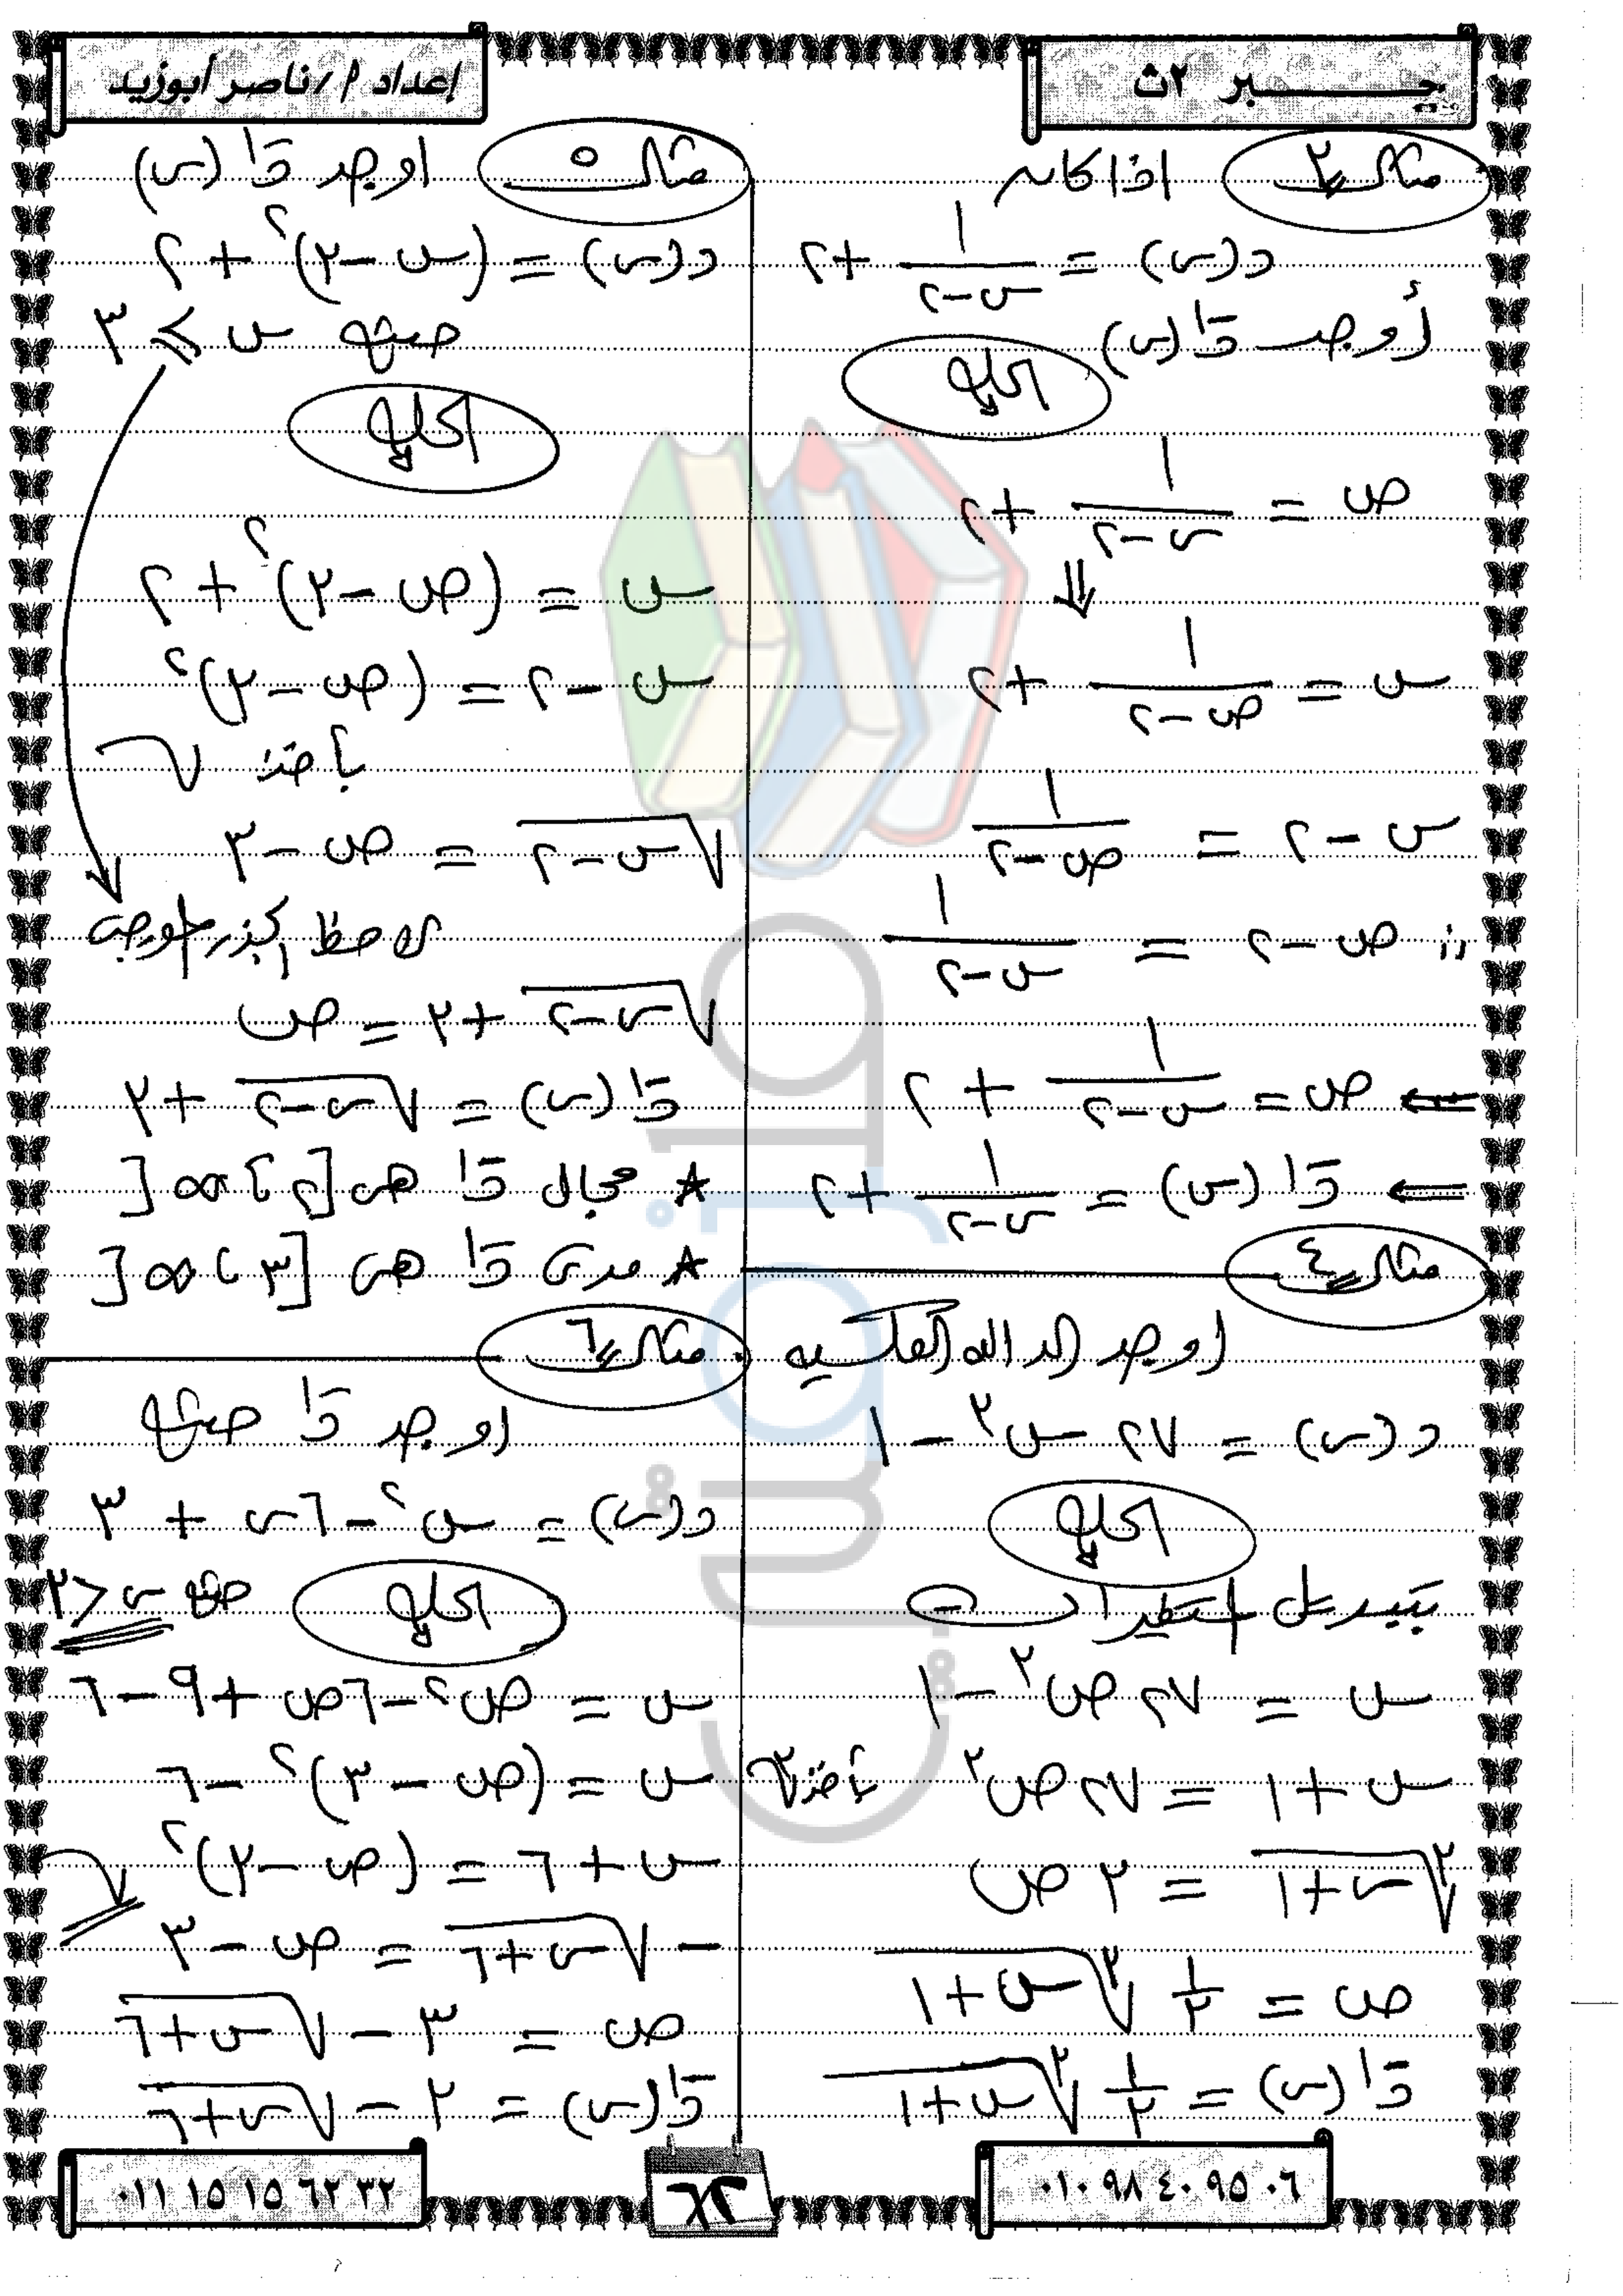 جبر ٢ث
إعداد أ/ ناصر أبوزيد
مثال ٣ اذا كانت
د(س) = ١/(س-٢) + ٢
أوجد د⁻¹(س)
الحل
ص = ١/(س-٢) + ٢
⇓
س = ١/(ص-٢) + ٢
س - ٢ = ١/(ص-٢)
∴ ص - ٢ = ١/(س-٢)
⇐ ص = ١/(س-٢) + ٢
⇐ د⁻¹(س) = ١/(س-٢) + ٢
مثال ٤
اوجد الدالة العكسية
د(س) = ٢٧ س³ - ١
الحل
بتبديل المتغيرات
س = ٢٧ ص³ - ١
س + ١ = ٢٧ ص³ بأخذ ∛
∛(س+١) = ٣ ص
ص = ١/٣ ∛(س+١)
د⁻¹(س) = ١/٣ ∛(س+١)
مثال ٥ اوجد د⁻¹(س)
د(س) = (س - ٣)² + ٢
حيث س ≥ ٣
الحل
س = (ص - ٣)² + ٢
س - ٢ = (ص - ٣)²
بأخذ √
√(س-٢) = ص - ٣
لاحظ الجذر الموجب
√(س-٢) + ٣ = ص
د⁻¹(س) = √(س-٢) + ٣
★ مجال د⁻¹ هي [٢ ، ∞[
★ مدى د⁻¹ هي [٣ ، ∞[
مثال ٦
اوجد د⁻¹ حيث
د(س) = س² - ٦س + ٣
الحل حيث س < ٣
س = ص² - ٦ص + ٩ - ٦
س = (ص - ٣)² - ٦
س + ٦ = (ص - ٣)²
- √(س+٦) = ص - ٣
ص = ٣ - √(س+٦)
د⁻¹(س) = ٣ - √(س+٦)
٠١٠ ٩٨ ٤٠ ٩٥ ٠٦
٦٣
٠١١ ١٥ ١٥ ٦٢ ٣٢